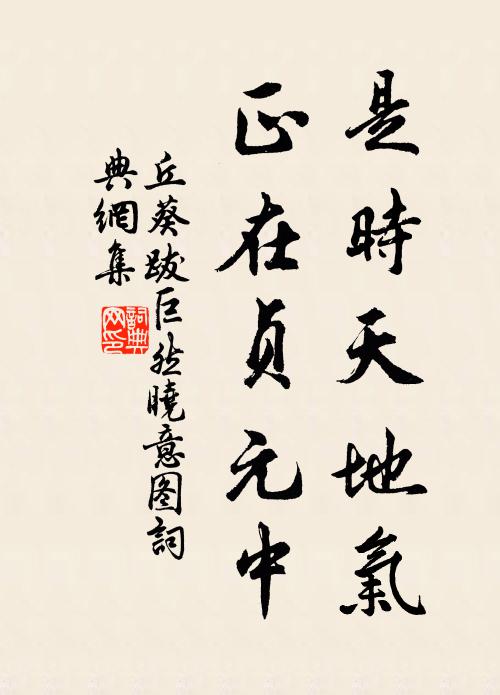 是時天地氣
正在贞元中
丘葵跋巨然曉意图詞
典網集
詞典
网印